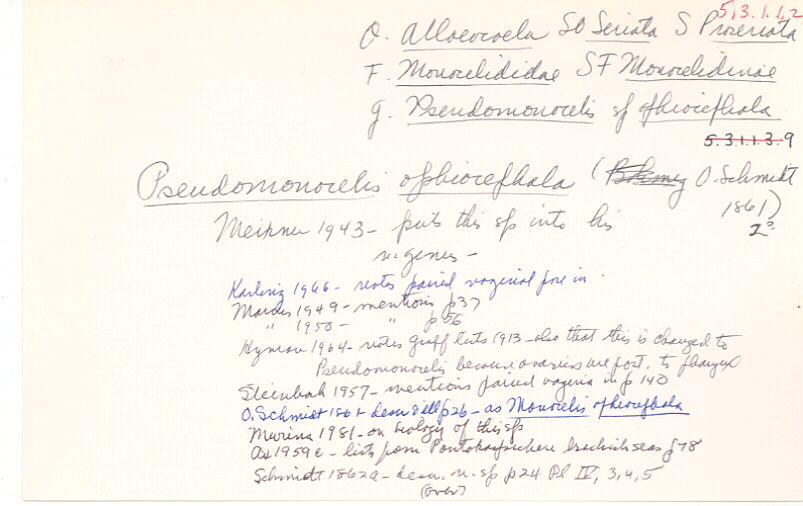 5.3.1.1.2
O. Alloeocoela SO Seriata S Proseriata
F. Monocelididae SF Monocelidinae
g. Pseudomonocelis sp ophiocephala
5.3.1.1.3.9
Pseudomonocelis ophiocephala ( O. Schmidt
1861)
Meixner 1943 - puts this sp into his
n. genus -
Karling 1966 - notes paired vaginal pore in
Marcus 1949 - mentions p37
" 1950 - " p56
Hyman 1964 - notes Graff lists 1913 - also that this is changed to
Pseudomonocelis because ovaries are post. to pharynx
Steinbock 1957 - mentions paired vagina in p 140
O. Schmidt 1861 - descr & ill p26 - as Monocelis ophiocephala
Murina 1981 - on biology of this sp
Ax 1959 - lists from Pontokaspischen brackish seas p 78
Schmidt 1862a - descr. n. sp p24 Pl IV, 3,4,5
(over)